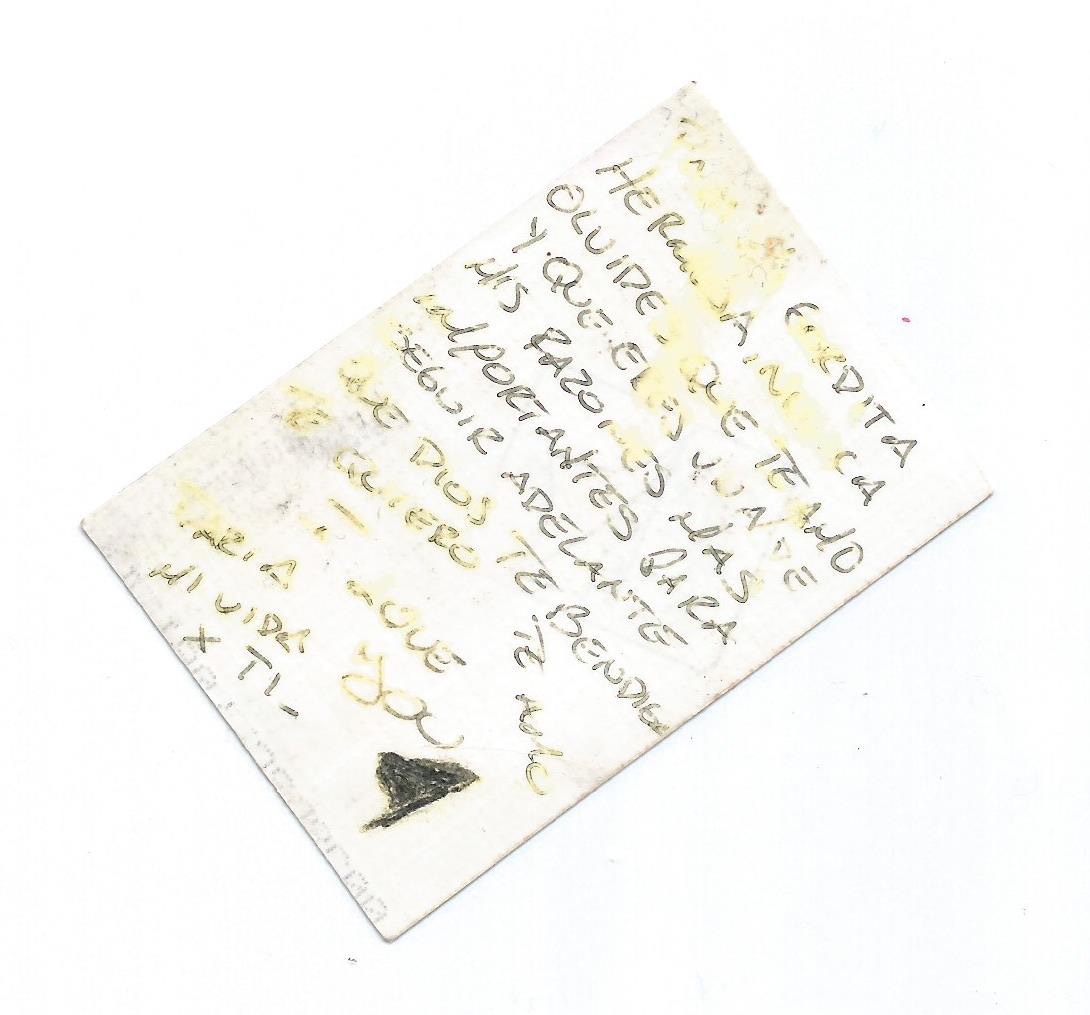 GORDITA
HERMOSA, NUNCA
OLVIDES QUE TE AMO
Y QUE ERES UNA DE
MIS RAZONES MAS
IMPORTANTES PARA
SEGUIR ADELANTE
QUE DIOS TE BENDIGA
TE QUIERO TE AMO
LOVE
YOU
DARIA
MI VIDA
X TI-